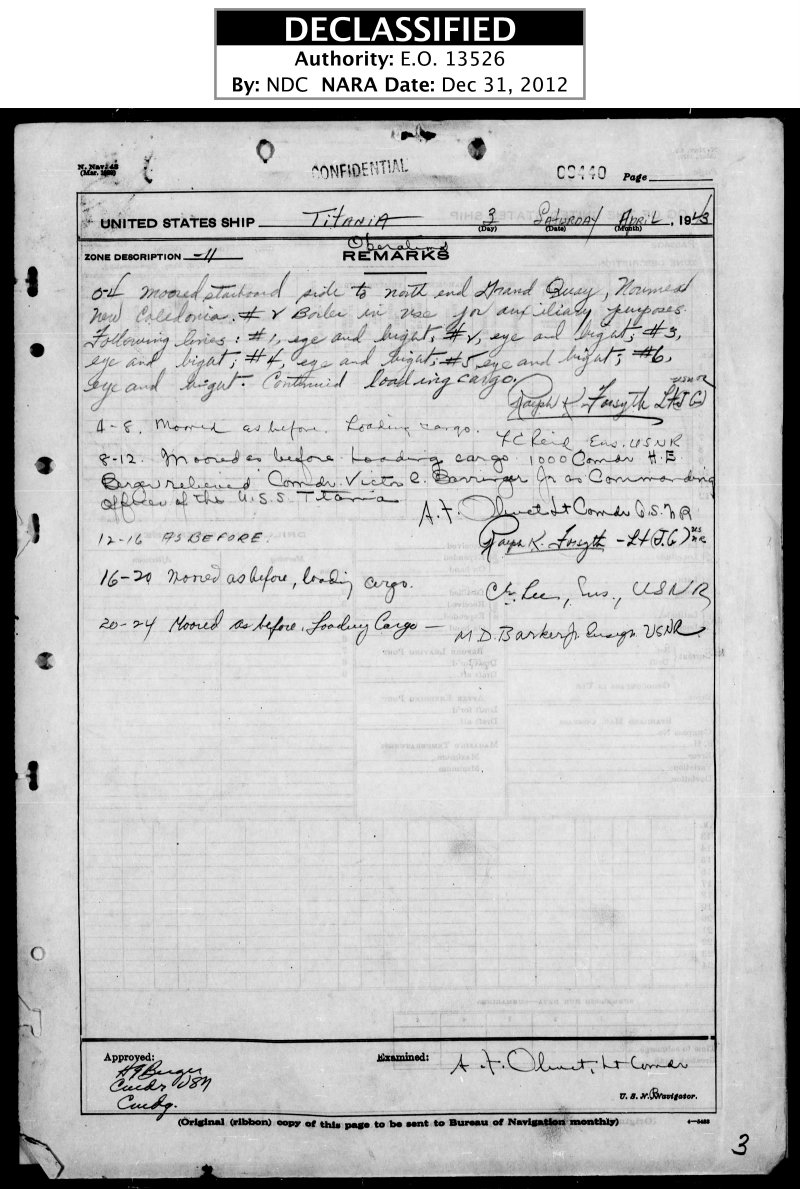 DECLASSIFIED
Authority: E.O. 13526
By: NDC NARA Date: Dec 31, 2012
N. Nav.
(Mar.
CONFIDENTIAL
Page
UNITED STATES SHIP TITANIA 3 SATURDAY APRIL, 1943
(Day) (Date) (Month)
ZONE DESCRIPTION -11
Operations
REMARKS
0-4 Moored starboard side to north end Grand Quay, Noumea
New Caledonia. # 2 Boiler in use for auxiliary purposes.
Following lines: #1, eye and bight; #2, eye and bight; #3,
eye and bight; #4, eye and bight; #5, eye and bight; #6,
eye and bight. Continued loading cargo.
Ralph K. Forsyth Lt(JG) USNR
4-8. Moored as before. Loading cargo. Ens. USNR
8-12. Moored as before. Loading cargo. 1000 Comdr H.E.
Berger relieved Comdr. Victor C. Barringer Jr as Commanding
officer of the U.S.S. Titania
A. F. Olivet Lt Comdr U.S.N.R
12-16 AS BEFORE.
Ralph K. Forsyth - Lt(J.G) USNR
16-20 Moored as before, loading cargo. Lee, Ens., USNR
20-24 Moored as before. Loading Cargo — M D. Barker Jr Ensign USNR
Approved:
Berger
Comdr USN
Cmdg.
Examined:
A. F. Olivet, Lt Comdr
U. S. N. R Navigator.
(Original (ribbon) copy of this page to be sent to Bureau of Navigation monthly)
3